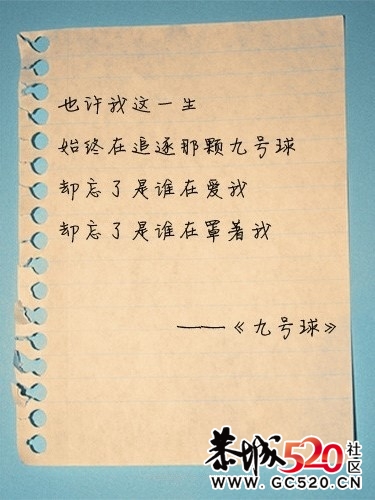 也许我这一生
始终在追逐那颗九号球
却忘了是谁在爱我
却忘了是谁在罩著我
——《九号球》
恭城520社区
WWW.GC520.CN